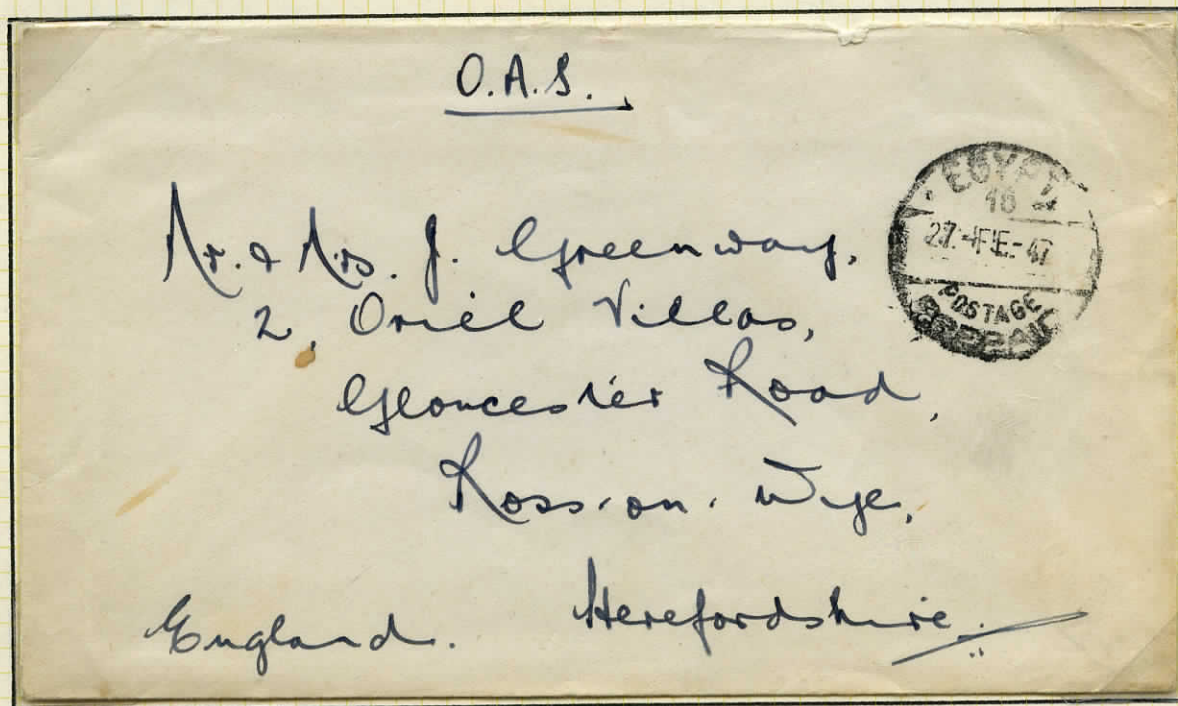 O.A.S.
EGYPT
16
27.-FE-47
POSTAGE
PREPAID
Mr. & Mrs. J. Greenway,
2, Oriel Villas,
Gloucester Road,
Ross-on-Wye,
Herefordshire.
England.